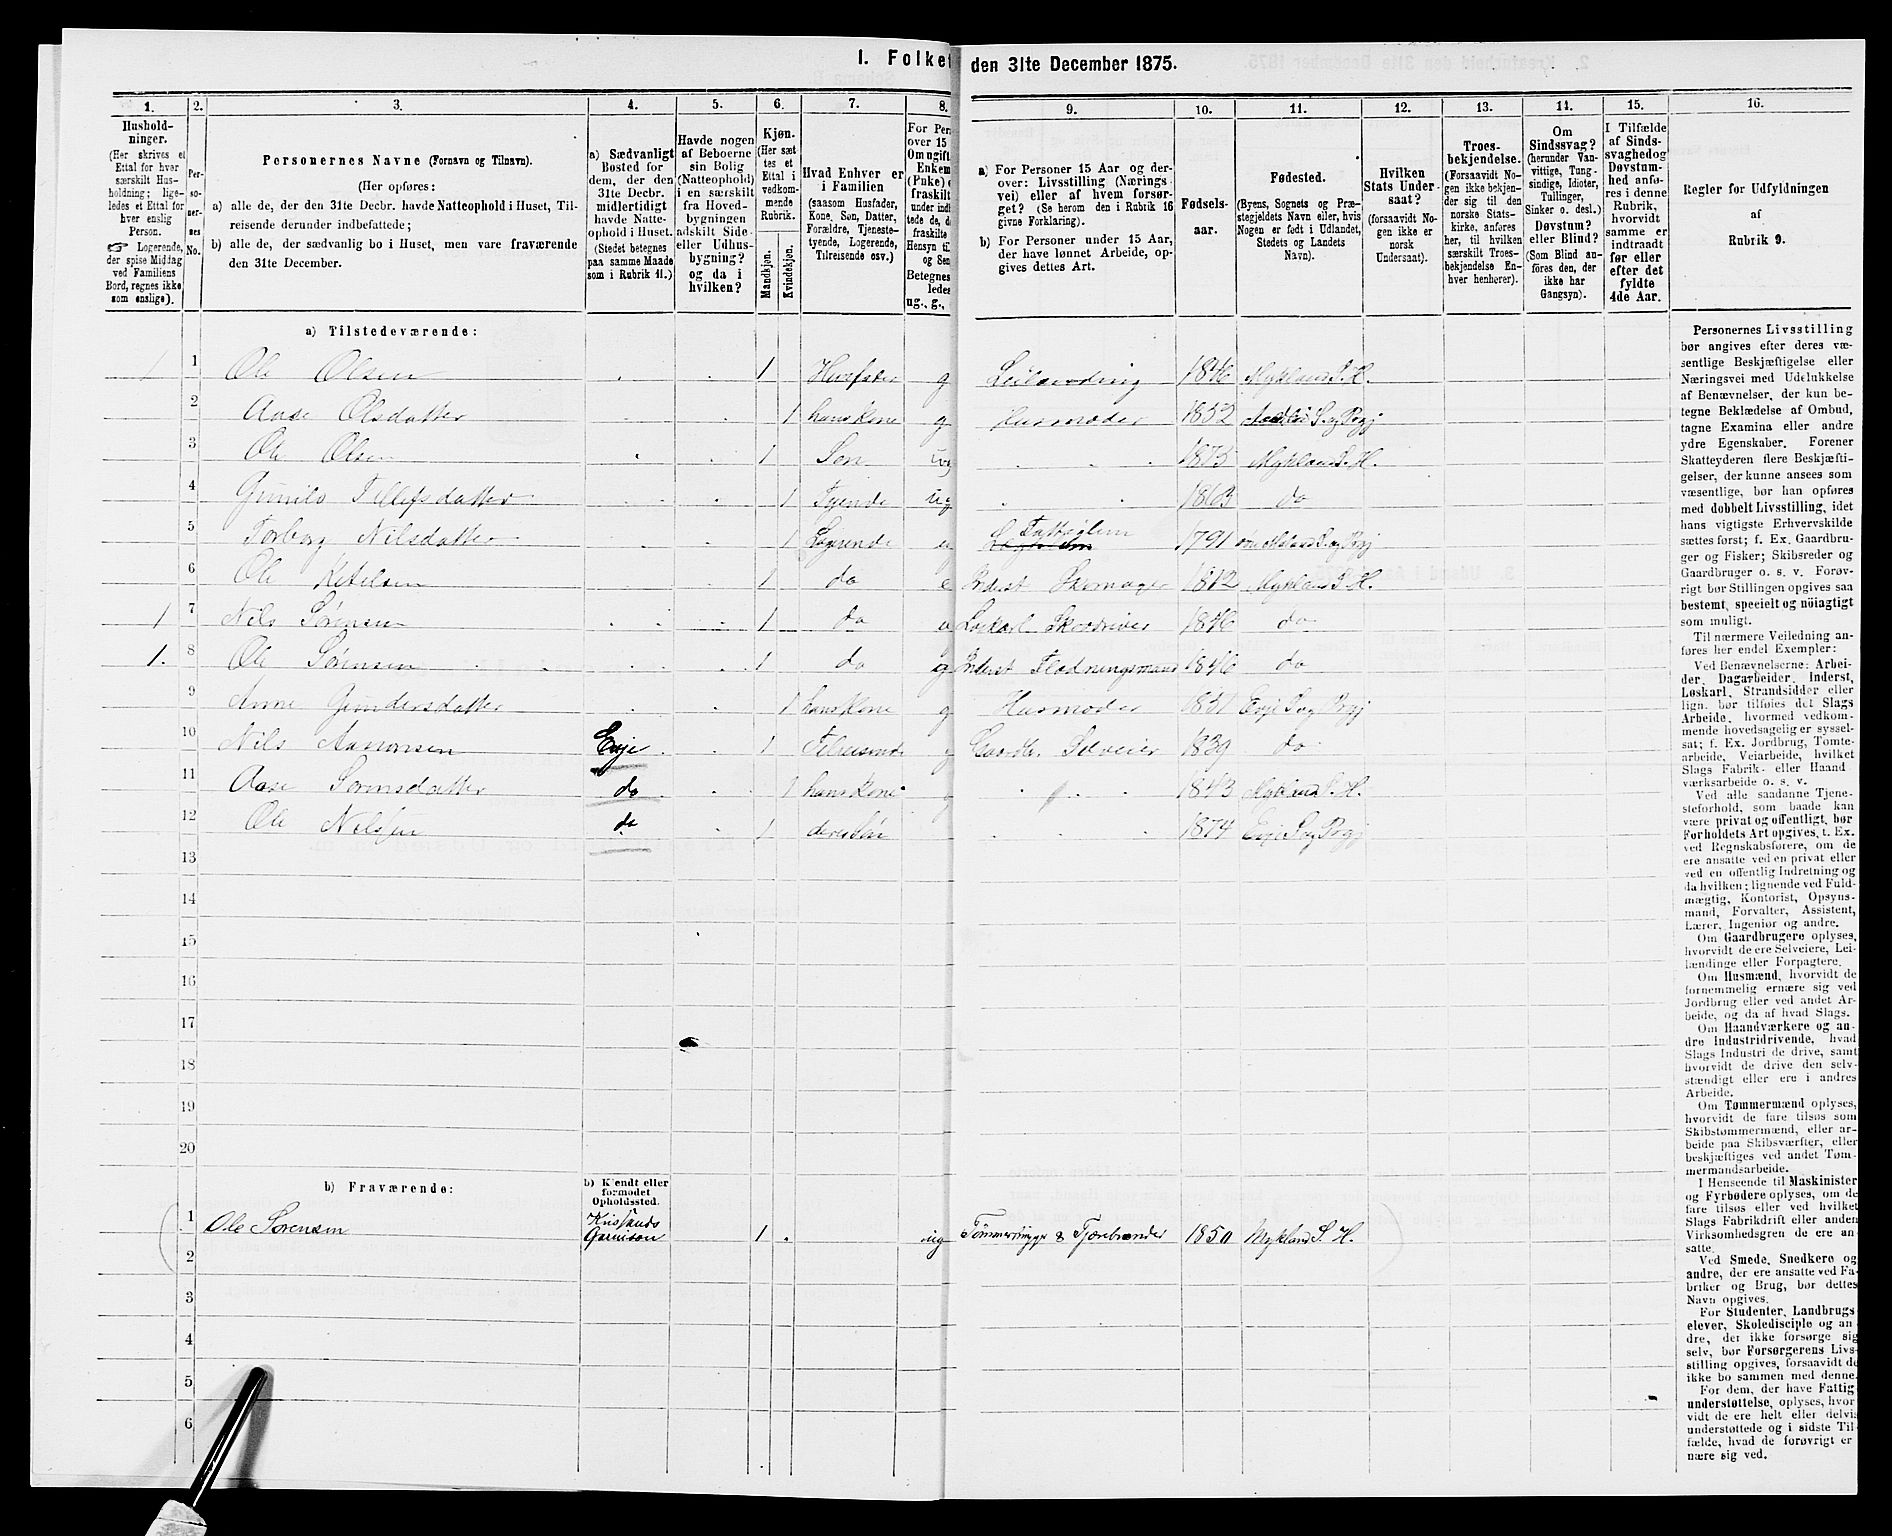 I. Folket
den 31te December 1875.
1. 2. 3. 4. 5. 6. 7. 8. 9. 10. 11. 12. 13. 14. 15. 16.
Hushold-
ninger.
(Her skrives et
Ettal for hver
særskilt Hus-
holdning; lige-
ledes et Ettal for
hver enslig
Person.
☞ Logerende,
der spise Middag
ved Familiens
Bord, regnes ikke
som enslige).
Per-
so-
ner-
nes
No.
Personernes Navne (Fornavn og Tilnavn).
(Her opføres:
a) alle de, der den 31te Decbr. havde Natteophold i Huset, Til-
reisende derunder indbefattede;
b) alle de, der sædvanlig bo i Huset, men vare fraværende
den 31te December.
a) Sædvanligt
Bosted for
dem, der den
31te Decbr.
midlertidigt
havde Natte-
ophold i Huset.
(Stedet betegnes
paa samme Maade
som i Rubrik 11.)
Havde nogen
af Beboerne
sin Bolig
(Natteophold)
i en særskilt
fra Hoved-
bygningen
adskilt Side-
eller Udhus-
bygning?
og da i
hvilken?
Kjøn.
(Her sæt
tes et
Ettal i
vedkom-
mende
Rubrik.
Mandkjøn.
Kvindekjøn.
Hvad Enhver er
i Familien
(saasom Husfader,
Kone, Søn, Datter,
Forældre, Tjeneste-
tyende, Logerende,
Tilreisende osv.)
For Pers
over 15
Om ugift
Enkem
(Enke) e
fraskilt
under indb
tede de, d
fraskilte
Hensyn til
og Sen
Betegnes
ledes
ug., g.,
a) For Personer 15 Aar og der-
over: Livsstilling (Nærings-
vei) eller af hvem forsør-
get? (Se herom den i Rubrik 16
givne Forklaring).
b) For Personer under 15 Aar,
der have lønnet Arbeide, op-
gives dettes Art.
Fødsels-
aar.
Fødested.
(Byens, Sognets og Præ-
stegjeldets Navn eller, hvis
Nogen er født i Udlandet,
Stedets og Landets
Navn).
Hvilken
Stats Under-
saat?
(forsaavidt No-
gen ikke er
norsk
Undersaat).
Troes-
bekjendelse.
(Forsaavidt No-
gen ikke bekjen-
der sig til den
norske Stats-
kirke, anføres
her, til hvilken
særskilt Troes-
bekjendelse En-
hver henhører).
Om
Sindssvag?
(herunder Van-
vittige, Tung-
sindige, Idioter,
Tullinger,
Sinker o. desl.)
Døvstum?
eller Blind?
(Som Blind an-
føres den, der
ikke har
Gangsyn).
I Tilfælde
af Sinds-
svaghed og
Døvstum-
hed anfø-
res i denne
Rubrik,
hvorvidt
samme er
indtraadt
før eller
efter det
fyldte
4de Aar.
Regler for Udfyldningen
af
Rubrik 9.
a) Tilstedeværende:
1 1 Ole Olsen 1 Huusfader g Leilænding 1846 Mykland S. H.
2 Aase Olsdatter 1 hans Kone g Husmoder 1852
3 Ole Olsen 1 Søn ug 1875 Mykland S. H.
4 Gunild Tellefsdatter 1 Tyende ug 1863 do
5 Torborg Nilsdatter 1 Logerende e Fattiglem 1791
6 Ole Ketelsen 1 do e Inderst Skomager 1812 Mykland S. H.
1 7 Nils Sørensen 1 do Løskarl 1846 do
1. 8 Ole Sørensen 1 do g Inderst Flødningsmand 1846 do
9 Anne Gundersdatter 1 hans Kone g Husmoder 1831 Evje S. og Prgj
10 Nils Aanonsen Evje 1 Tilreisende g Gaardbr. Selveier 1839 do
11 Aase Sørensdatter do 1 hans Kone g 1843 Mykland S. H.
12 Ole Nilssen do 1 deres Søn 1874 Evje S. og Prgj
13
14
15
16
17
18
19
20
b) Fraværende:
b) Kjendt eller
formodet
Opholdssted.
1 Ole Sørensen Krissands Garnison 1 ug Tømmerhugger & Tjærebrænder 1850 Mykland S. H.
2
3
4
5
6
Personernes Livsstilling
bør angives efter deres væ-
sentlige Beskjæftigelse eller
Næringsvei med Udelukkelse
af Benævnelser, der kun be-
tegne Beklædelse af Ombud,
tagne Examina eller andre
ydre Egenskaber. Forener
Skatteyderen flere Beskjæfti-
gelser, der kunne ansees som
væsentlige, bør han opføres
med dobbelt Livsstilling, idet
hans vigtigste Erhvervskilde
sættes først; f. Ex. Gaardbru-
ger og Fisker; Skibsreder og
Gaardbruger o. s. v. Forøv-
rigt bør Stillingen opgives saa
bestemt, specielt og nöiagtigt
som muligt.
Til nærmere Veiledning an-
føres her endel Exempler:
Ved Benævnelserne: Arbei-
der, Dagarbeider, Inderst,
Løskarl, Strandsidder eller
lign. bør tilføies det Slags
Arbeide, hvormed vedkom-
mende hovedsagelig er syssel-
sat; f. Ex. Jordbrug, Tomte-
arbeide, Veiarbeide, hvilket
Slags Fabrik- eller Haand
værksarbeide o. s. v.
Ved alle saadanne Tjene-
steforhold, som baade kan
være privat og offentligt, bør
Forholdets Art opgives, t. Ex.
ved Regnskabsførere, om de
ere ansatte ved en privat eller
ved en offentlig Indretning og
da hvilken; lignende ved Fuld-
mægtig, Kontorist, Opsyns-
mand, Forvalter, Assistent,
Lærer, Ingeniør og andre.
Om Gaardbrugere oplyses,
hvorvidt de ere Selveiere, Lei-
lændinge eller Forpagtere.
Om Husmænd, hvorvidt de
fornemmelig ernære sig ved
Jordbrug eller ved andet Ar-
beide, og da af hvad Slags.
Om Haandværkere og an-
dre Industridrivende, hvad
Slags Industri de drive, samt
hvorvidt de drive den selv-
stændigt eller ere i andres
Arbeide.
Om Tømmermænd oplyses,
hvorvidt de fare tilsøs som
Skibstømmermænd, eller ar-
beide paa Skibsværfter, eller
beskjæftiges ved andet Tøm-
mermandsarbeide.
I Henseende til Maskinister
og Fyrbødere oplyses, om de
fare tilsøs eller ved hvilket
Slags Fabrikdrift eller anden
Virksomhedsgren de ere an-
satte.
Ved Smede, Snedkere og
andre, der ere ansatte ved Fa-
briker og Brug, bør dettes
Navn opgives.
For Studenter, Landbrugs
elever, Skoledisciple og an
dre, der ikke forsørge sig
selv, bør Forsørgerens Livs-
stilling opgives, forsaavidt de
ikke bo sammen med denne.
For dem, der have Fattig-
understøttelse, oplyses, hvor
vidt de ere helt eller delvis
understøttede og i sidste Til-
fælde, hvad de forøvrigt er
nære sig ved.